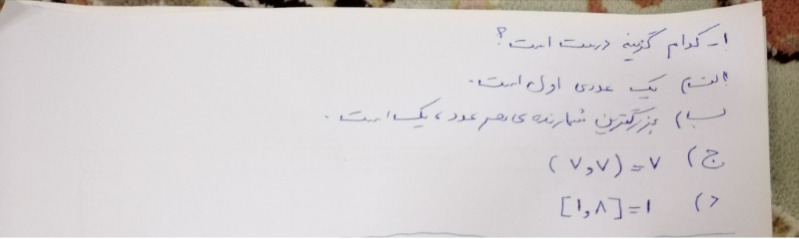 ۱- کدام گزینه درست است؟
الف) یک عددی اول است.
ب) بزرگترین شمارنده ی هر عدد، یک است.
ج) (۷,۷)=۷
د) [۱,۸]=۱